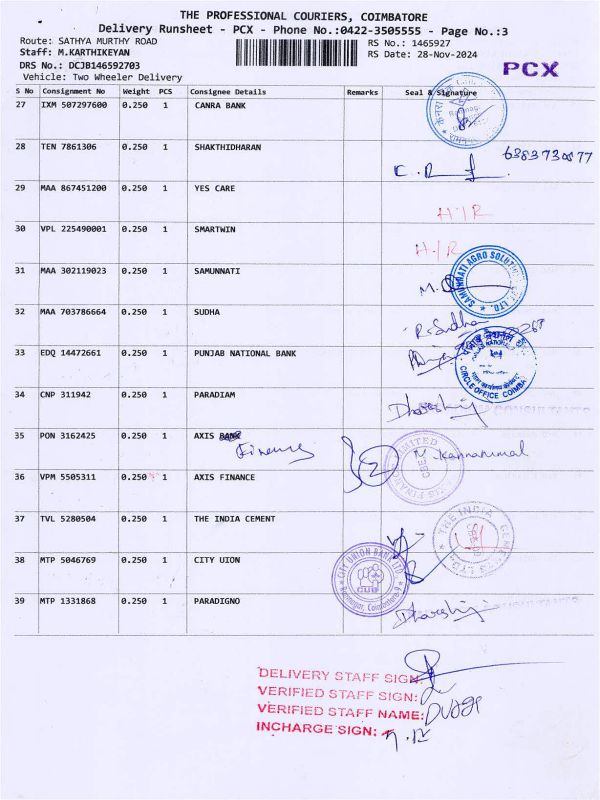 THE PROFESSIONAL COURIERS, COIMBATORE
Delivery Runsheet - PCX - Phone No.:0422-3505555 - Page No.:3
Route: SATHYA MURTHY ROAD
RS No.: 1465927
Staff: M.KARTHIKEYAN
RS Date: 28-Nov-2024
DRS No.: DCJB146592703
PCX
Vehicle: Two Wheeler Delivery
S No Consignment No Weight PCS Consignee Details Remarks Seal & Signature
27 IXM 507297600 0.250 1 CANRA BANK
28 TEN 7861306 0.250 1 SHAKTHIDHARAN
29 MAA 867451200 0.250 1 YES CARE H/R
30 VPL 225490001 0.250 1 SMARTWIN H/R
31 MAA 302119023 0.250 1 SAMUNNATI
SAMUNNATI AGRO SOLUTIONS PVT. LTD.
32 MAA 703786664 0.250 1 SUDHA R.Sudha
33 EDQ 14472661 0.250 1 PUNJAB NATIONAL BANK
CIRCLE OFFICE COIMBA
34 CNP 311942 0.250 1 PARADIAM
CONSULTANTS
35 PON 3162425 0.250 1 AXIS BANK
Finance M. Kannammal
36 VPM 5505311 0.250 1 AXIS FINANCE
37 TVL 5280504 0.250 1 THE INDIA CEMENT
THE INDIA CEMENTS LTD.
38 MTP 5046769 0.250 1 CITY UION
CITY UNION BANK LTD
CUB
39 MTP 1331868 0.250 1 PARADIGNO
DELIVERY STAFF SIGN:
VERIFIED STAFF SIGN:
VERIFIED STAFF NAME:
INCHARGE SIGN: